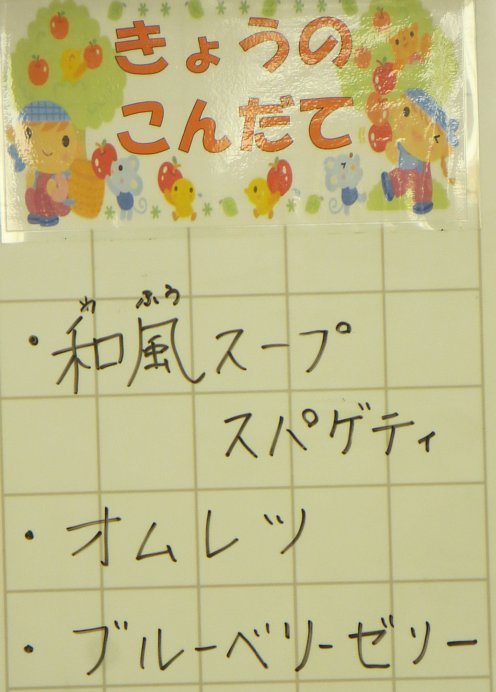 きょうの
こんだて
わ ふう
・和風スープ
スパゲティ
・オムレツ
・ブルーベリーゼリー